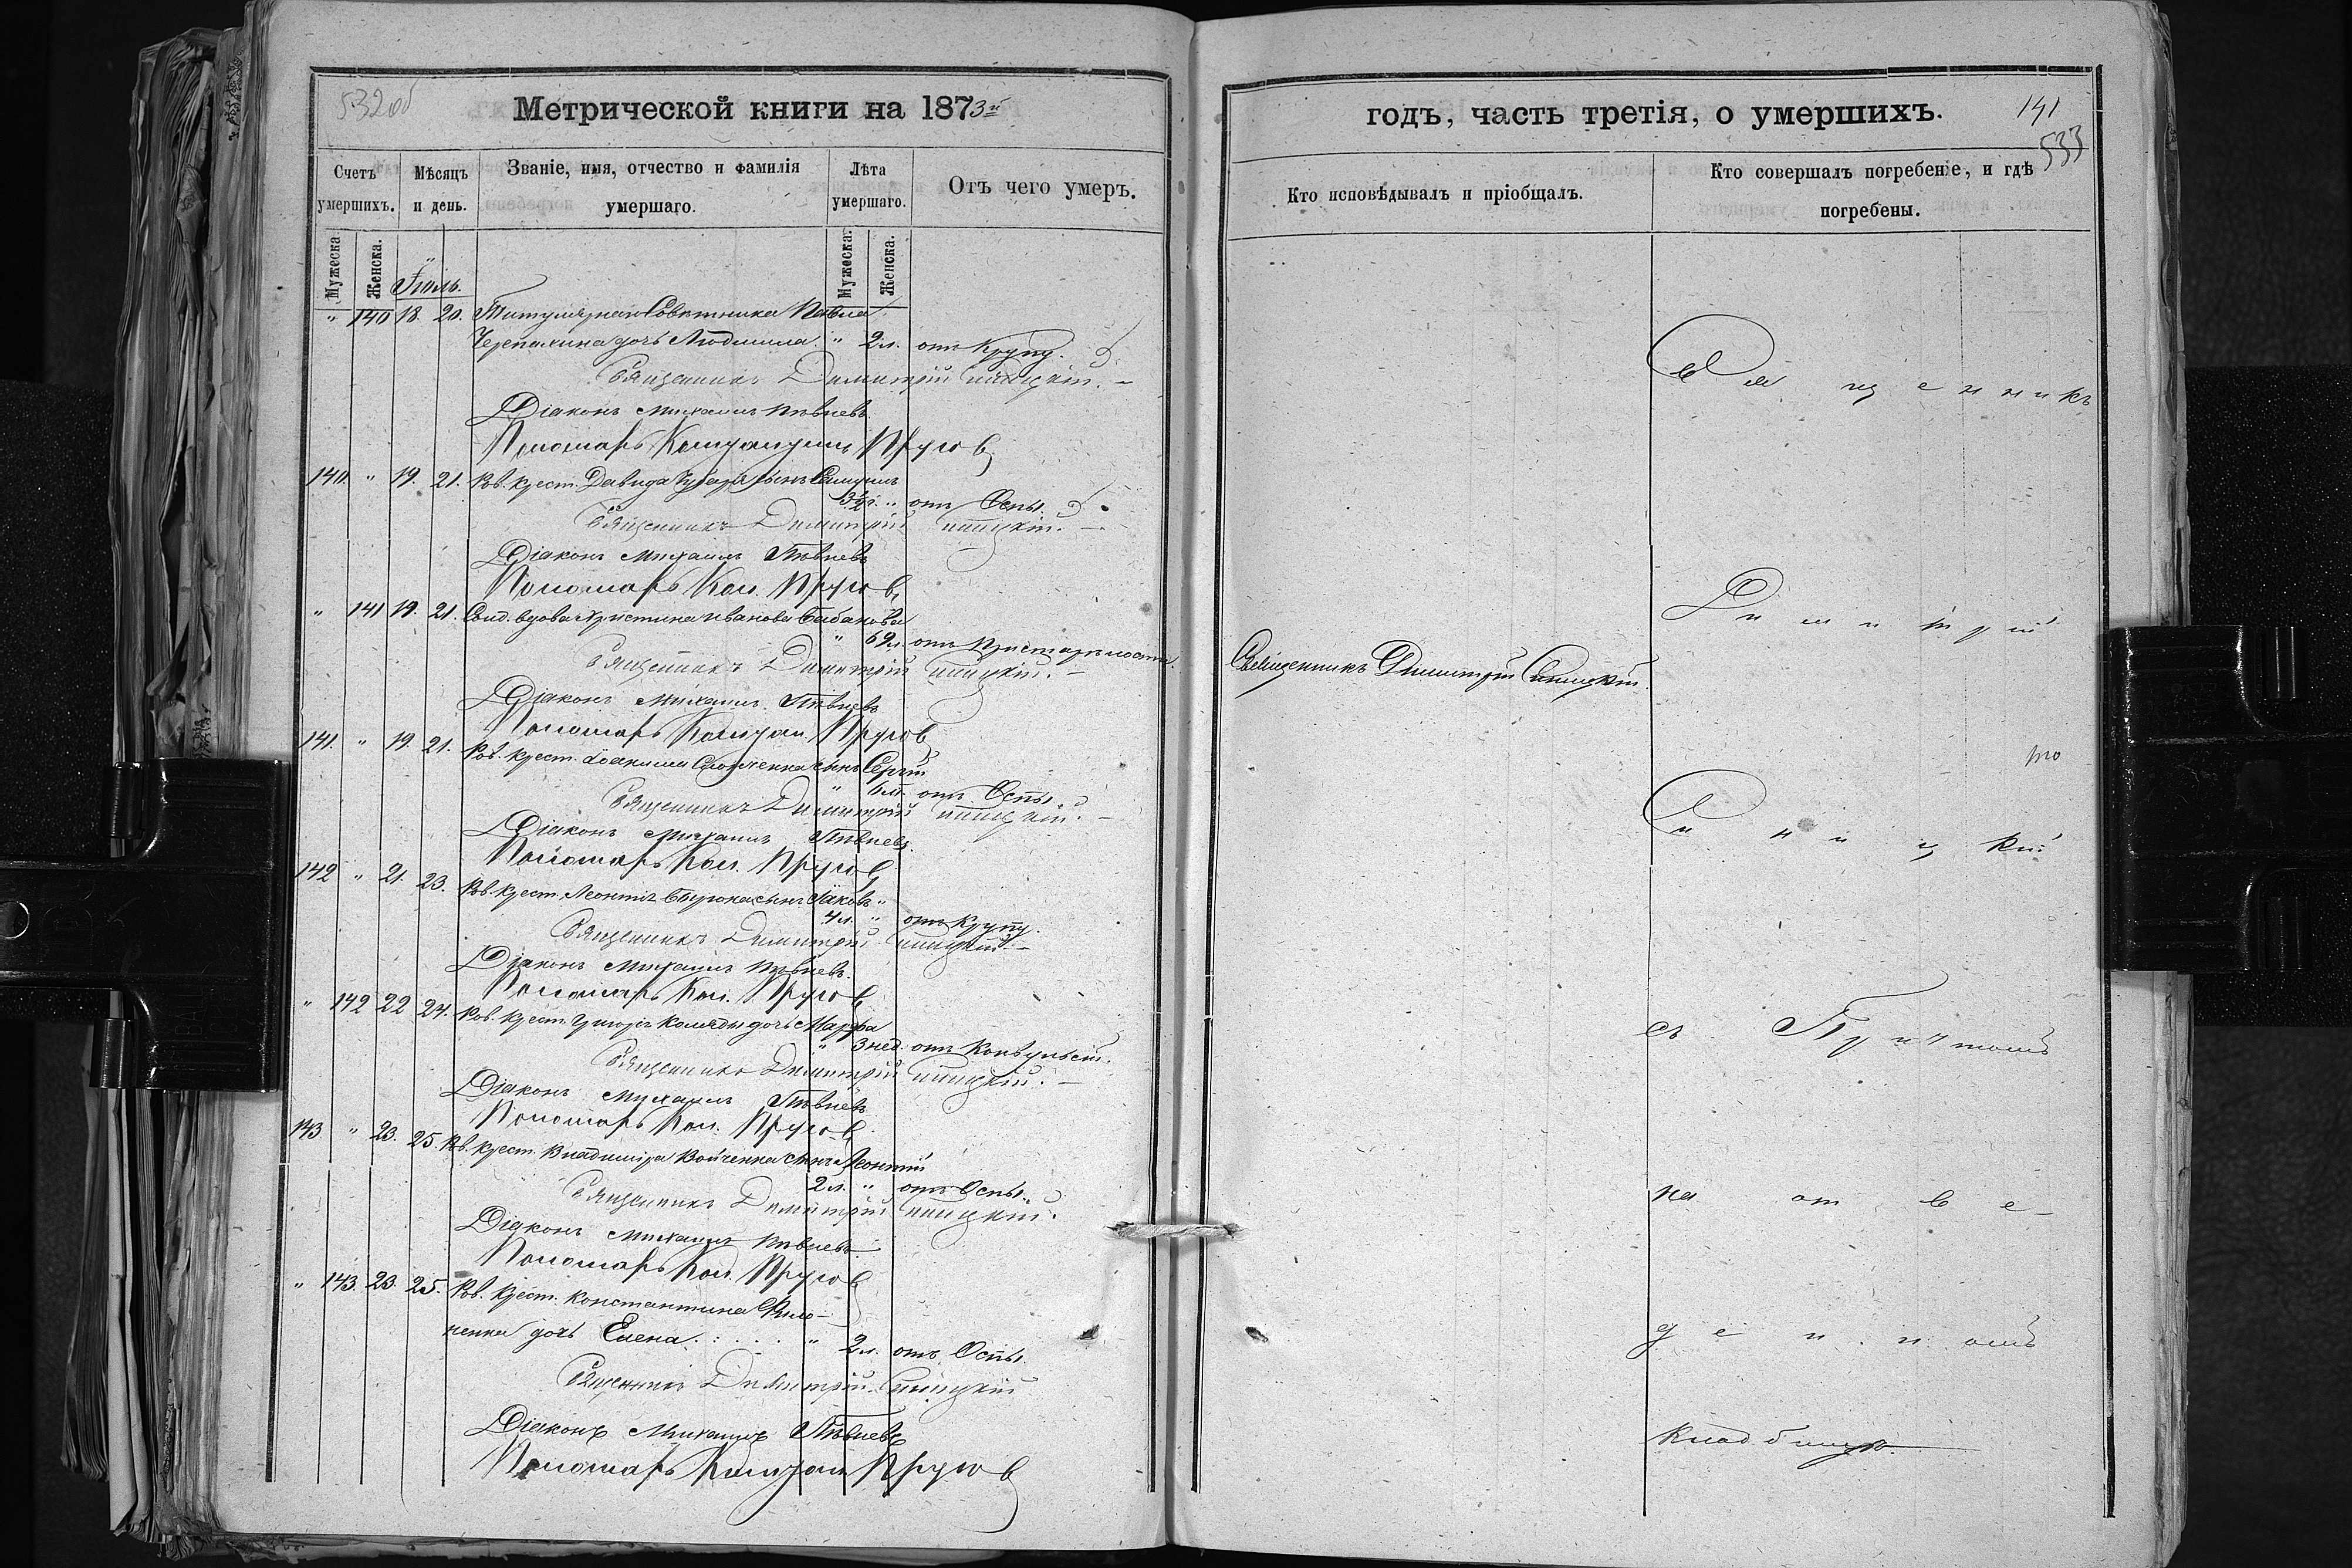 532об
Метрической книги на 1873й
Счетъ умершихъ.
Мѣсяцъ и день.
Званіе, имя, отчество и фамилія умершаго.
Лѣта умершаго.
Отъ чего умеръ.
Мужеска
Женска.
Мужеска.
Женска.
Іюль.
" 140 18. 20. Титулярнаго Совѣтника Павла
дочь Людмила. " 2 л. отъ Крупа.
Священникъ Димитрій Синицкій.
Діаконъ Михаилъ Пѣвневъ
Пономарь Кон. Пруговъ
140 " 19. 21. Ров. крест. Давида сынъ
отъ Оспы.
Священникъ Димитрій Синицкій.
Діаконъ Михаилъ Пѣвневъ
Пономарь Кон. Пруговъ
" 141 19. 21. Солд. вдова Христина Иванова Бабакова
" 69 л. отъ Престарѣлости.
Священникъ Димитрій Синицкій.
Діаконъ Михаилъ Пѣвневъ
Пономарь Пруговъ
141. " 19. 21. Ров. крест. Іоакима сынъ Сергій
отъ Оспы.
Священникъ Димитрій Синицкій.
Діаконъ Михаилъ Пѣвневъ.
Пономарь Кон. Пруговъ
142 " 21. 23. Ров. крест. Леонтія Бирюка сынъ Іаковъ
4 л. " отъ Крупу.
Священникъ Димитрій Синицкій.
Діаконъ Михаилъ Пѣвневъ.
Пономарь Кон. Пруговъ
" 142 22 24. Ров. крест. Григорія Коляды дочь Марфа
" 3 нед. отъ Конвульсій.
Священникъ Димитрій Синицкій.
Діаконъ Михаилъ Пѣвневъ
Пономарь Кон. Пруговъ
143 " 23. 25. Ров. крест. Владиміра Войченка сынъ Леонтій
2 л. " отъ Оспы.
Священникъ Димитрій Синицкій.
Діаконъ Михаилъ Пѣвневъ
Пономарь Кон. Пруговъ
" 143. 23. 25. Ров. крест. Константина Фило-
ненка дочь Елена. " 2 л. отъ Оспы.
Священникъ Димитрій Синицкій
Діаконъ Михаилъ Пѣвневъ
Пономарь Пруговъ
годъ, часть третія, о умершихъ.
141
533
Кто исповѣдывалъ и пріобщалъ.
Кто совершалъ погребеніе, и гдѣ погребены.
Священникъ
Димитрій
Священникъ Димитрій Синицкій.
то
Синицкій
съ Причтомъ
на отве-
денномъ
кладбищѣ.